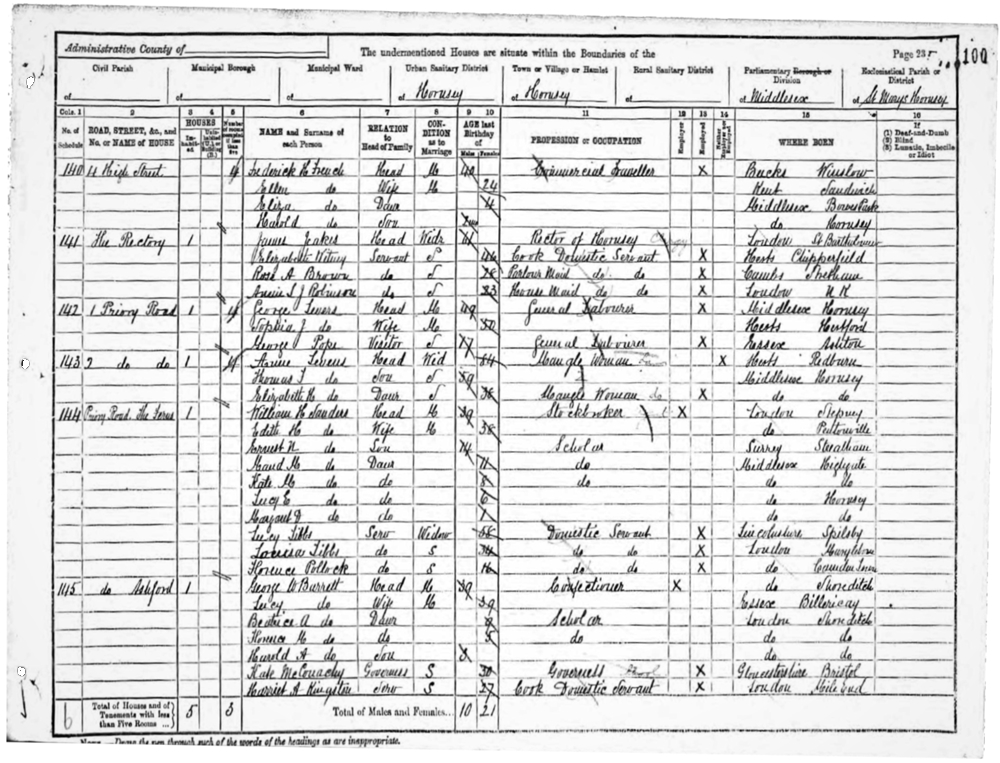 Administrative County of
The undermentioned Houses are situate within the Boundaries of the
Page 23
100
Civil Parish Municipal Borough Municipal Ward Urban Sanitary District Town or Village or Hamlet Rural Sanitary District Parliamentary Borough or Division Ecclesiastical Parish or District
of of of of Hornsey of Hornsey of of Middlesex of St Marys Hornsey
Cols. 1 2 3 4 5 6 7 8 9 10 11 12 13 14 15 16
No. of Schedule ROAD, STREET, &c., and No. or NAME of HOUSE HOUSES Inhabited NAME and Surname of each Person RELATION to Head of Family CONDITION as to Marriage AGE last Birthday of Males Females PROFESSION or OCCUPATION Employer Employed WHERE BORN If (1) Deaf-and-Dumb (2) Blind (3) Lunatic, Imbecile or Idiot
140 4 High Street 4 Frederick H French Head M 40 Commercial Traveller X Bucks Winslow
Ellen do Wife M 24 Kent Sandwich
Eliza do Daur 4 Middlesex Bowes Park
Harold do Son do Hornsey
141 The Rectory 1 James Jeakes Head Widr 61 Rector of Hornsey London St Bartholomew
Elizabeth Witney Servant S 46 Cook Domestic Servant X Herts Chipperfield
Rose A Brown do S 28 Parlour Maid do do X Cambs
Annie S J Robinson do S 23 House Maid do do X London N K
142 1 Priory Road 1 4 George Severs Head M 49 General Labourer X Middlesex Hornsey
Sophia J do Wife M 50 Herts Hertford
George Pope Visitor S 17 General Labourer X Essex Ashton
143 2 do do 1 4 Annie Severs Head Wid 64 Mangle Woman X Herts Redburn
Thomas J do Son S 39 Middlesex Hornsey
Elizabeth H do Daur S 36 Mangle Woman do X do do
144 Priory Road The Ferns 1 William H Sanders Head M 39 Stockbroker X London Stepney
Edith H do Wife M 38 do Pentonville
Ernest H do Son 14 Scholar Surrey Streatham
Maud M do Daur 11 do Middlesex Highgate
Kate M do do 8 do do do
Lucy E do do 6 do Hornsey
Margaret D do do 1 do do
Lucy Tibbs Serv Widow 58 Domestic Servant X Lincolnshire Spilsby
Louisa Tibbs do S 34 do do X London Marylebone
Florence Pollock do S 16 do do X do Camden Town
145 do Ashford 1 George W Barrett Head M 39 Confectioner X do Shoreditch
Lucy do Wife M 39 Essex Billericay
Beatrice A do Daur 9 Scholar London Shoreditch
Florence M do do 5 do do do
Harold A do Son do do
Kate McConachy Governess S 30 Governess X Gloucestershire Bristol
Harriet A Kingston Serv S 27 Cook Domestic Servant X London Mile End
6 Total of Houses and of Tenements with less than Five Rooms 5 3 Total of Males and Females... 10 21
Note.—Draw the pen through such of the words of the headings as are inappropriate.